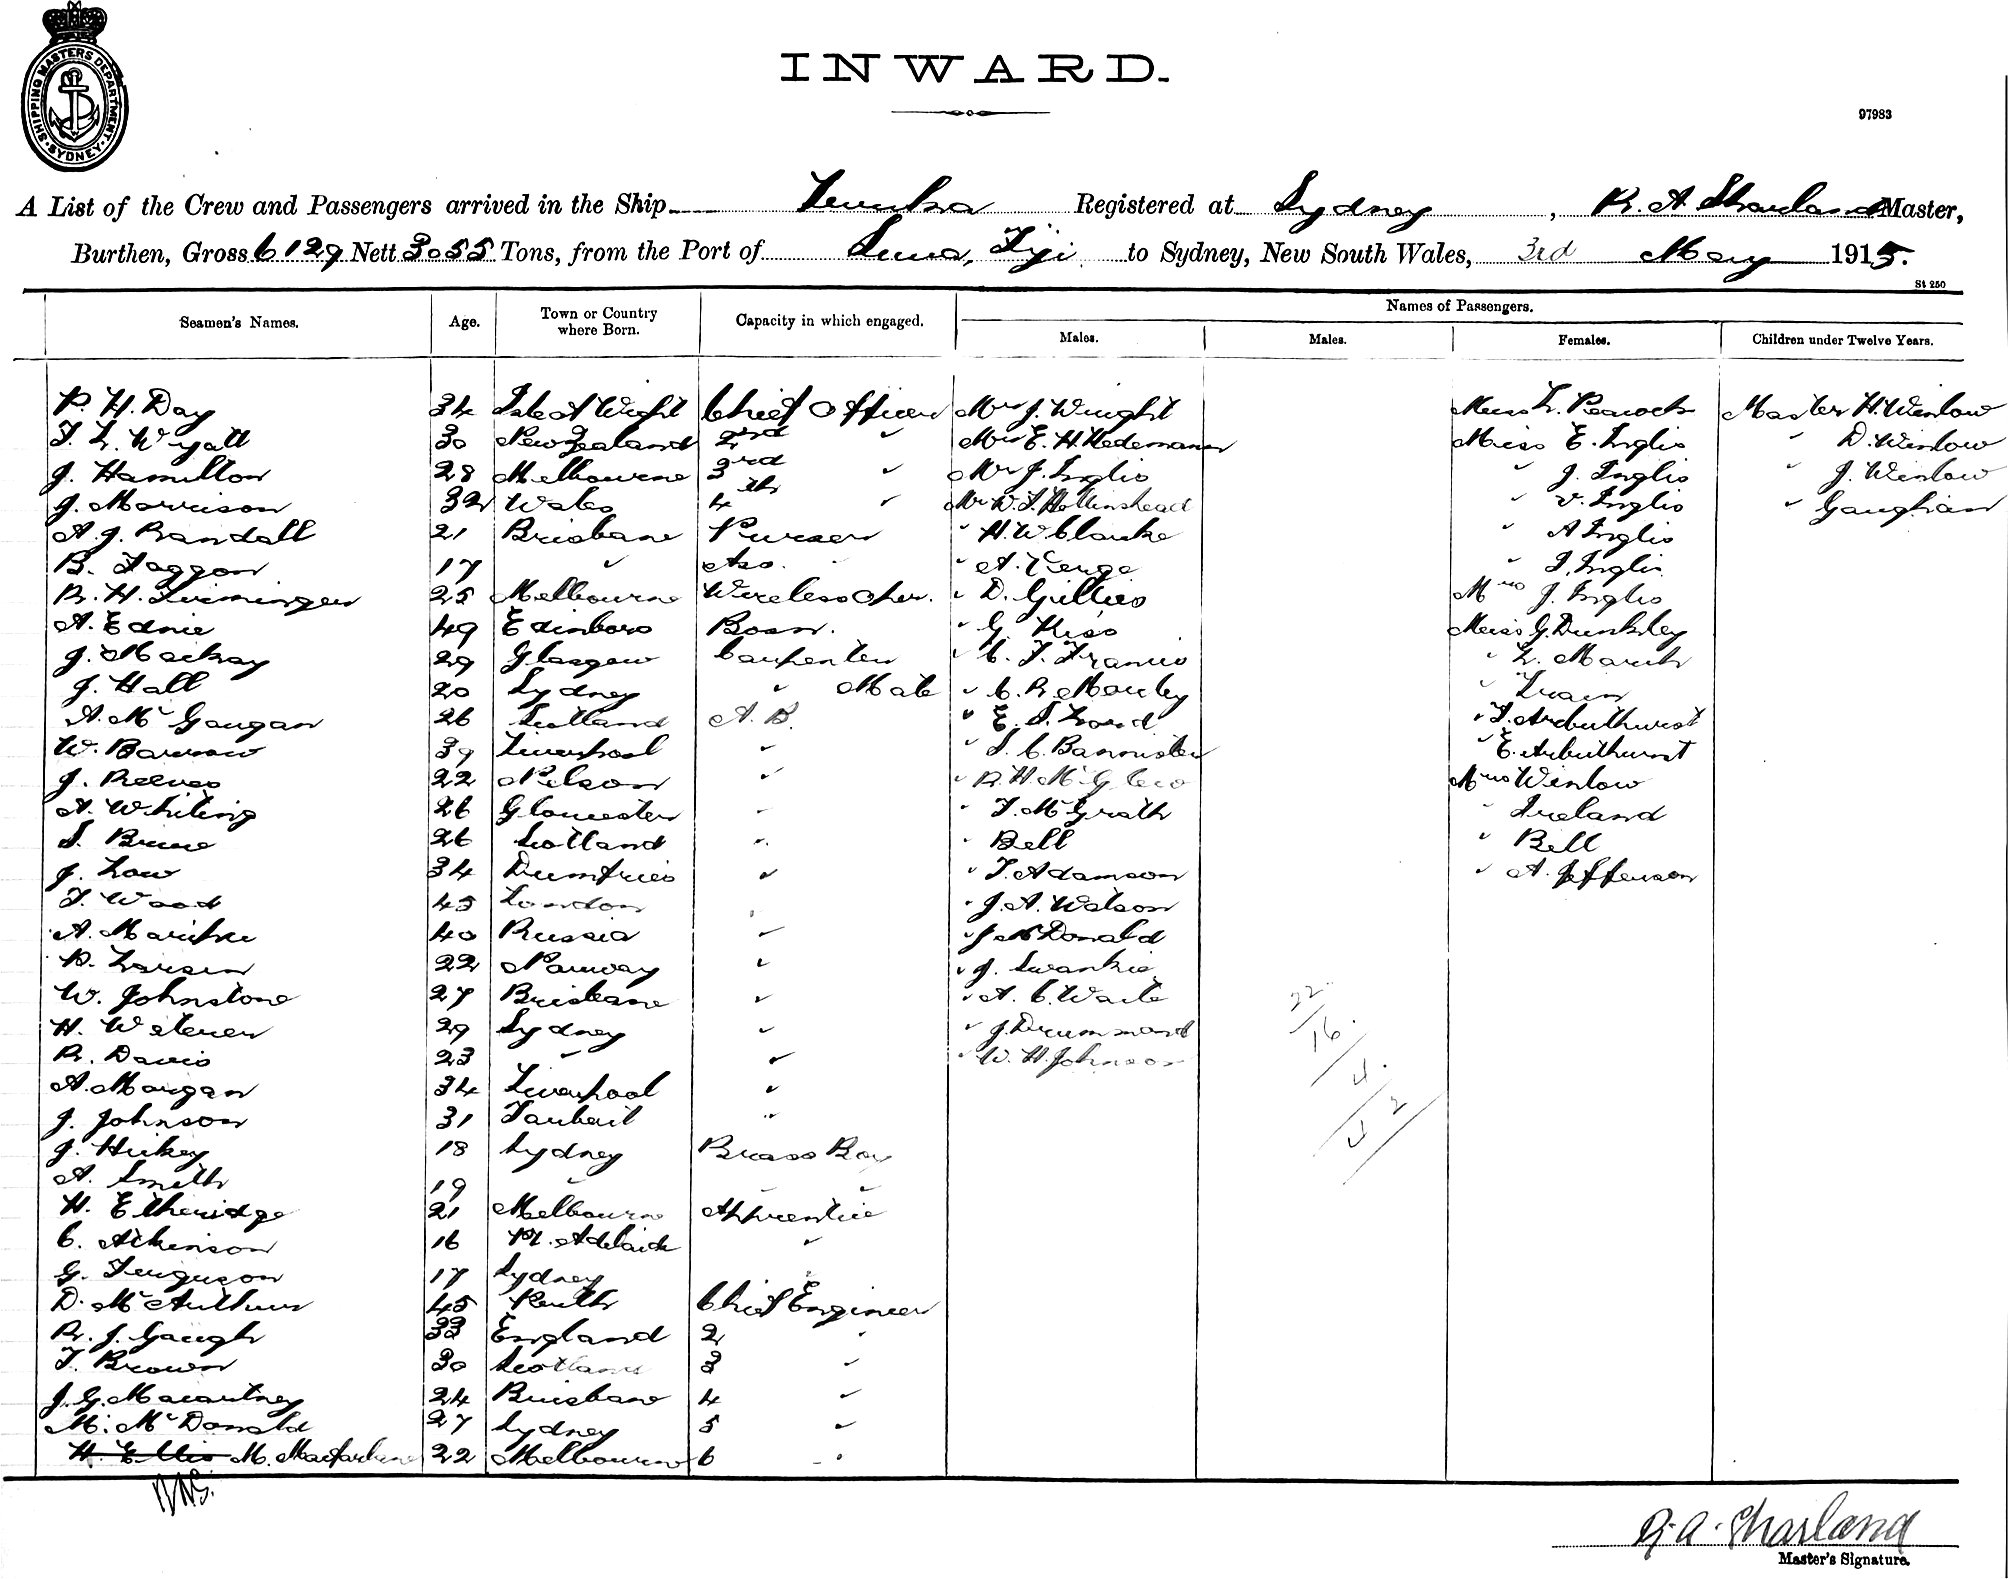 SHIPPING MASTERS DEPARTMENT. SYDNEY.
INWARD.
97983
A List of the Crew and Passengers arrived in the Ship Levuka Registered at Sydney, R. A. Sharland Master,
Burthen, Gross 6129 Nett 3055 Tons, from the Port of Suva, Fiji to Sydney, New South Wales, 3rd May 1915.
St 250
Seamen's Names. Age. Town or Country where Born. Capacity in which engaged. Names of Passengers.
Males. Males. Females. Children under Twelve Years.
P. H. Day 34 Isle of Wight Chief Officer Mr J. Wright Miss L. Peacock Master H. Winlow
T. L. Wyatt 30 New Zealand 2nd " Mr E. H. Hedemann Miss E. Inglis " D. Winlow
J. Hamilton 28 Melbourne 3rd " Mr J. Inglis " J. Inglis " J. Winlow
J. Morrison 32 Wales 4th " Mr W. T. Hollinshead " V. Inglis " Gaughan
A. J. Randall 21 Brisbane Purser " H. W. Clarke " A Inglis
B. Faggon 17 " Ass. " A. " I. Inglis
R. H. 25 Melbourne Wireless Oper. " D. Gillies Mrs J. Inglis
A. Ednie 49 Edinboro Bosn. " G. Kiss Miss G. Dunkley
J. Mackay 29 Glasgow Carpenter " C. T. Francis " L. March
J. Hall 20 Sydney " Mate " C. R. Manley " Train
A. McGougan 26 Scotland A. B. " E. S. Lord " F. Arbuthurst
W. Barrow 39 Liverpool " " S. C. Bannister " E. Arbuthurst
J. Reeves 22 Nelson " " R. H. Mrs Winlow
A. Whiting 26 Gloucester " " T. McGrath " Ireland
S. Bruce 26 Scotland " " Bell " Bell
J. Low 34 Dumfries " " T. Adamson " A. Jefferson
T. Wood 45 London " " J. A. Watson
A. 40 Russia " " J McDonald
P. Larsen 22 Norway " " J. Swankie
W. Johnstone 27 Brisbane " " A. C. Waite
H. 29 Sydney " " J. Drummond
R. Davis 23 " " " W. H. Johnson
A. Morgan 34 Liverpool "
J. Johnson 31 "
J. Hickey 18 Sydney Brass Boy
A. Smith 19 " " "
H. Etheridge 21 Melbourne Apprentice
C. Atkinson 16 Pt. Adelaide "
G. Ferguson 17 Sydney "
D. McArthur 45 Perth Chief Engineer
R. J. Gaugh 33 England 2 "
T. Brown 30 Scotland 3 "
J. G. Macartney 24 Brisbane 4 "
M. McDonald 27 Sydney 5 "
H. Ellis M. Macfarlane 22 Melbourne 6 "
22
16
4
42
RAS.
R. A. Sharland
Master's Signature.